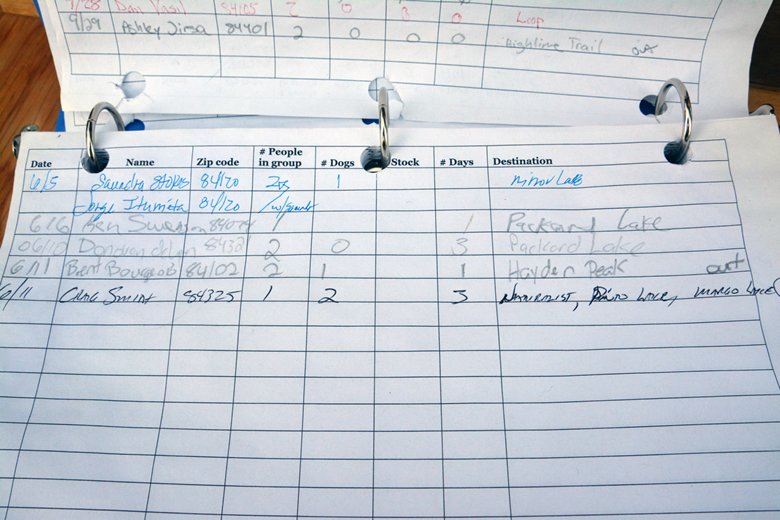 9/28 Dan Vasil 84105 2 0 3 0 Loop
9/29 Ashley Jirsa 84401 2 0 0 0 Highline Trail out
Date Name Zip code # People in group # Dogs Stock # Days Destination
6/5 Saundra 84120 1
84120
6/6 Ben Swenson 1 1 Packard Lake
06/10 Donavan 2 0 3 Packard Lake
6/11 Brent Bourgeois 84102 2 1 1 Hayden Peak out
6/11 Craig Smith 84325 1 2 3 Naturalist, Lake, Margo Lake